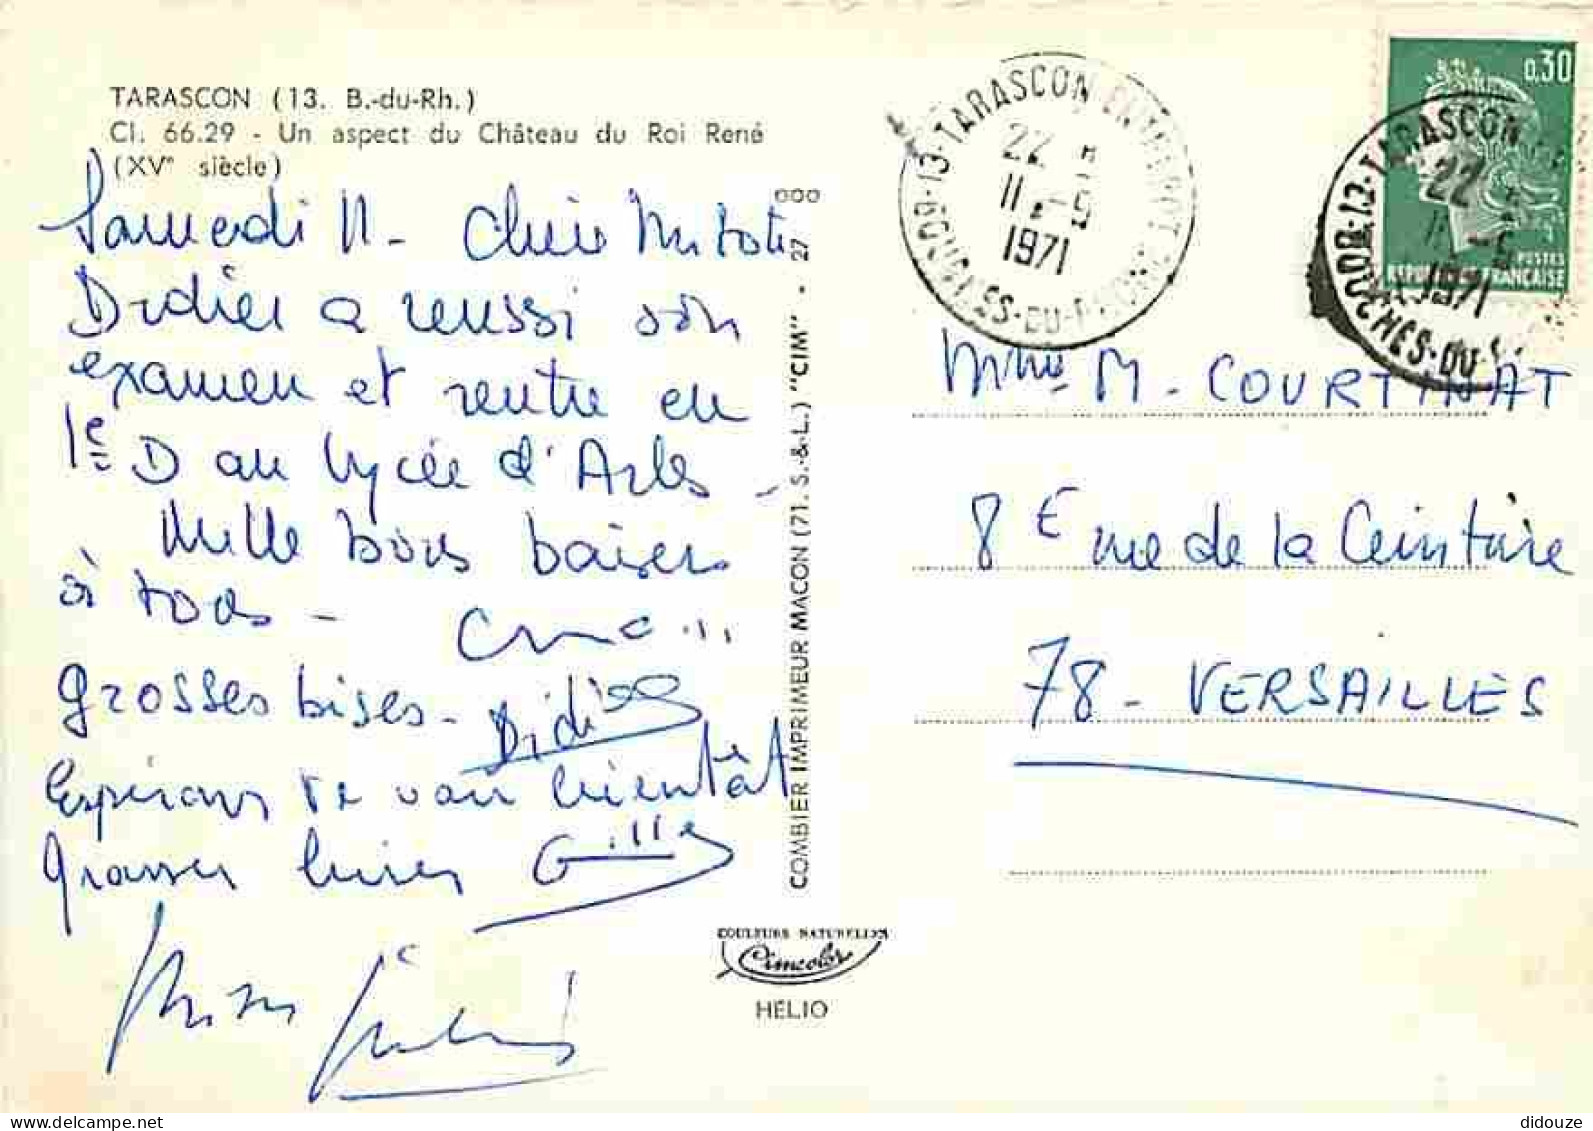 TARASCON (13. B.-du-Rh.)
Cl. 66.29 - Un aspect du Château du Roi René
(XVe siècle)
Samedi 11 - Chère
Didier a reussi son
examen et rentre en
1e D au lycée d'Arles -
Mille bons baisers
à tous -
grosses bises - Didier
Espérons te voir bientôt
grosses bises Gilles
COMBIER IMPRIMEUR MACON (71. S.-&-L.) "CIM" - 27
COULEURS NATURELLES
Cimcolor
HELIO
13-TARASCON
BOUCHES-DU-RHONE
22 H
11 -9
1971
0,30
POSTES
REPUBLIQUE FRANÇAISE
13-TARASCON
BOUCHES-DU-
22
1971
Mme M. COURTINAT
8 E rue de la Ceinture
78 - VERSAILLES
didouze
delcampe.net